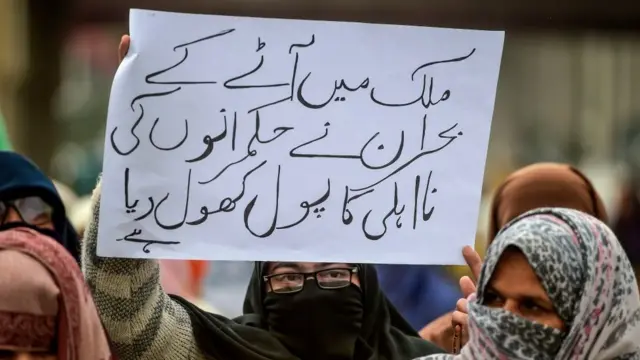 ملک میں آٹے کے
بحران نے حکمرانوں کی
نااہلی کا پول کھول دیا
ہے